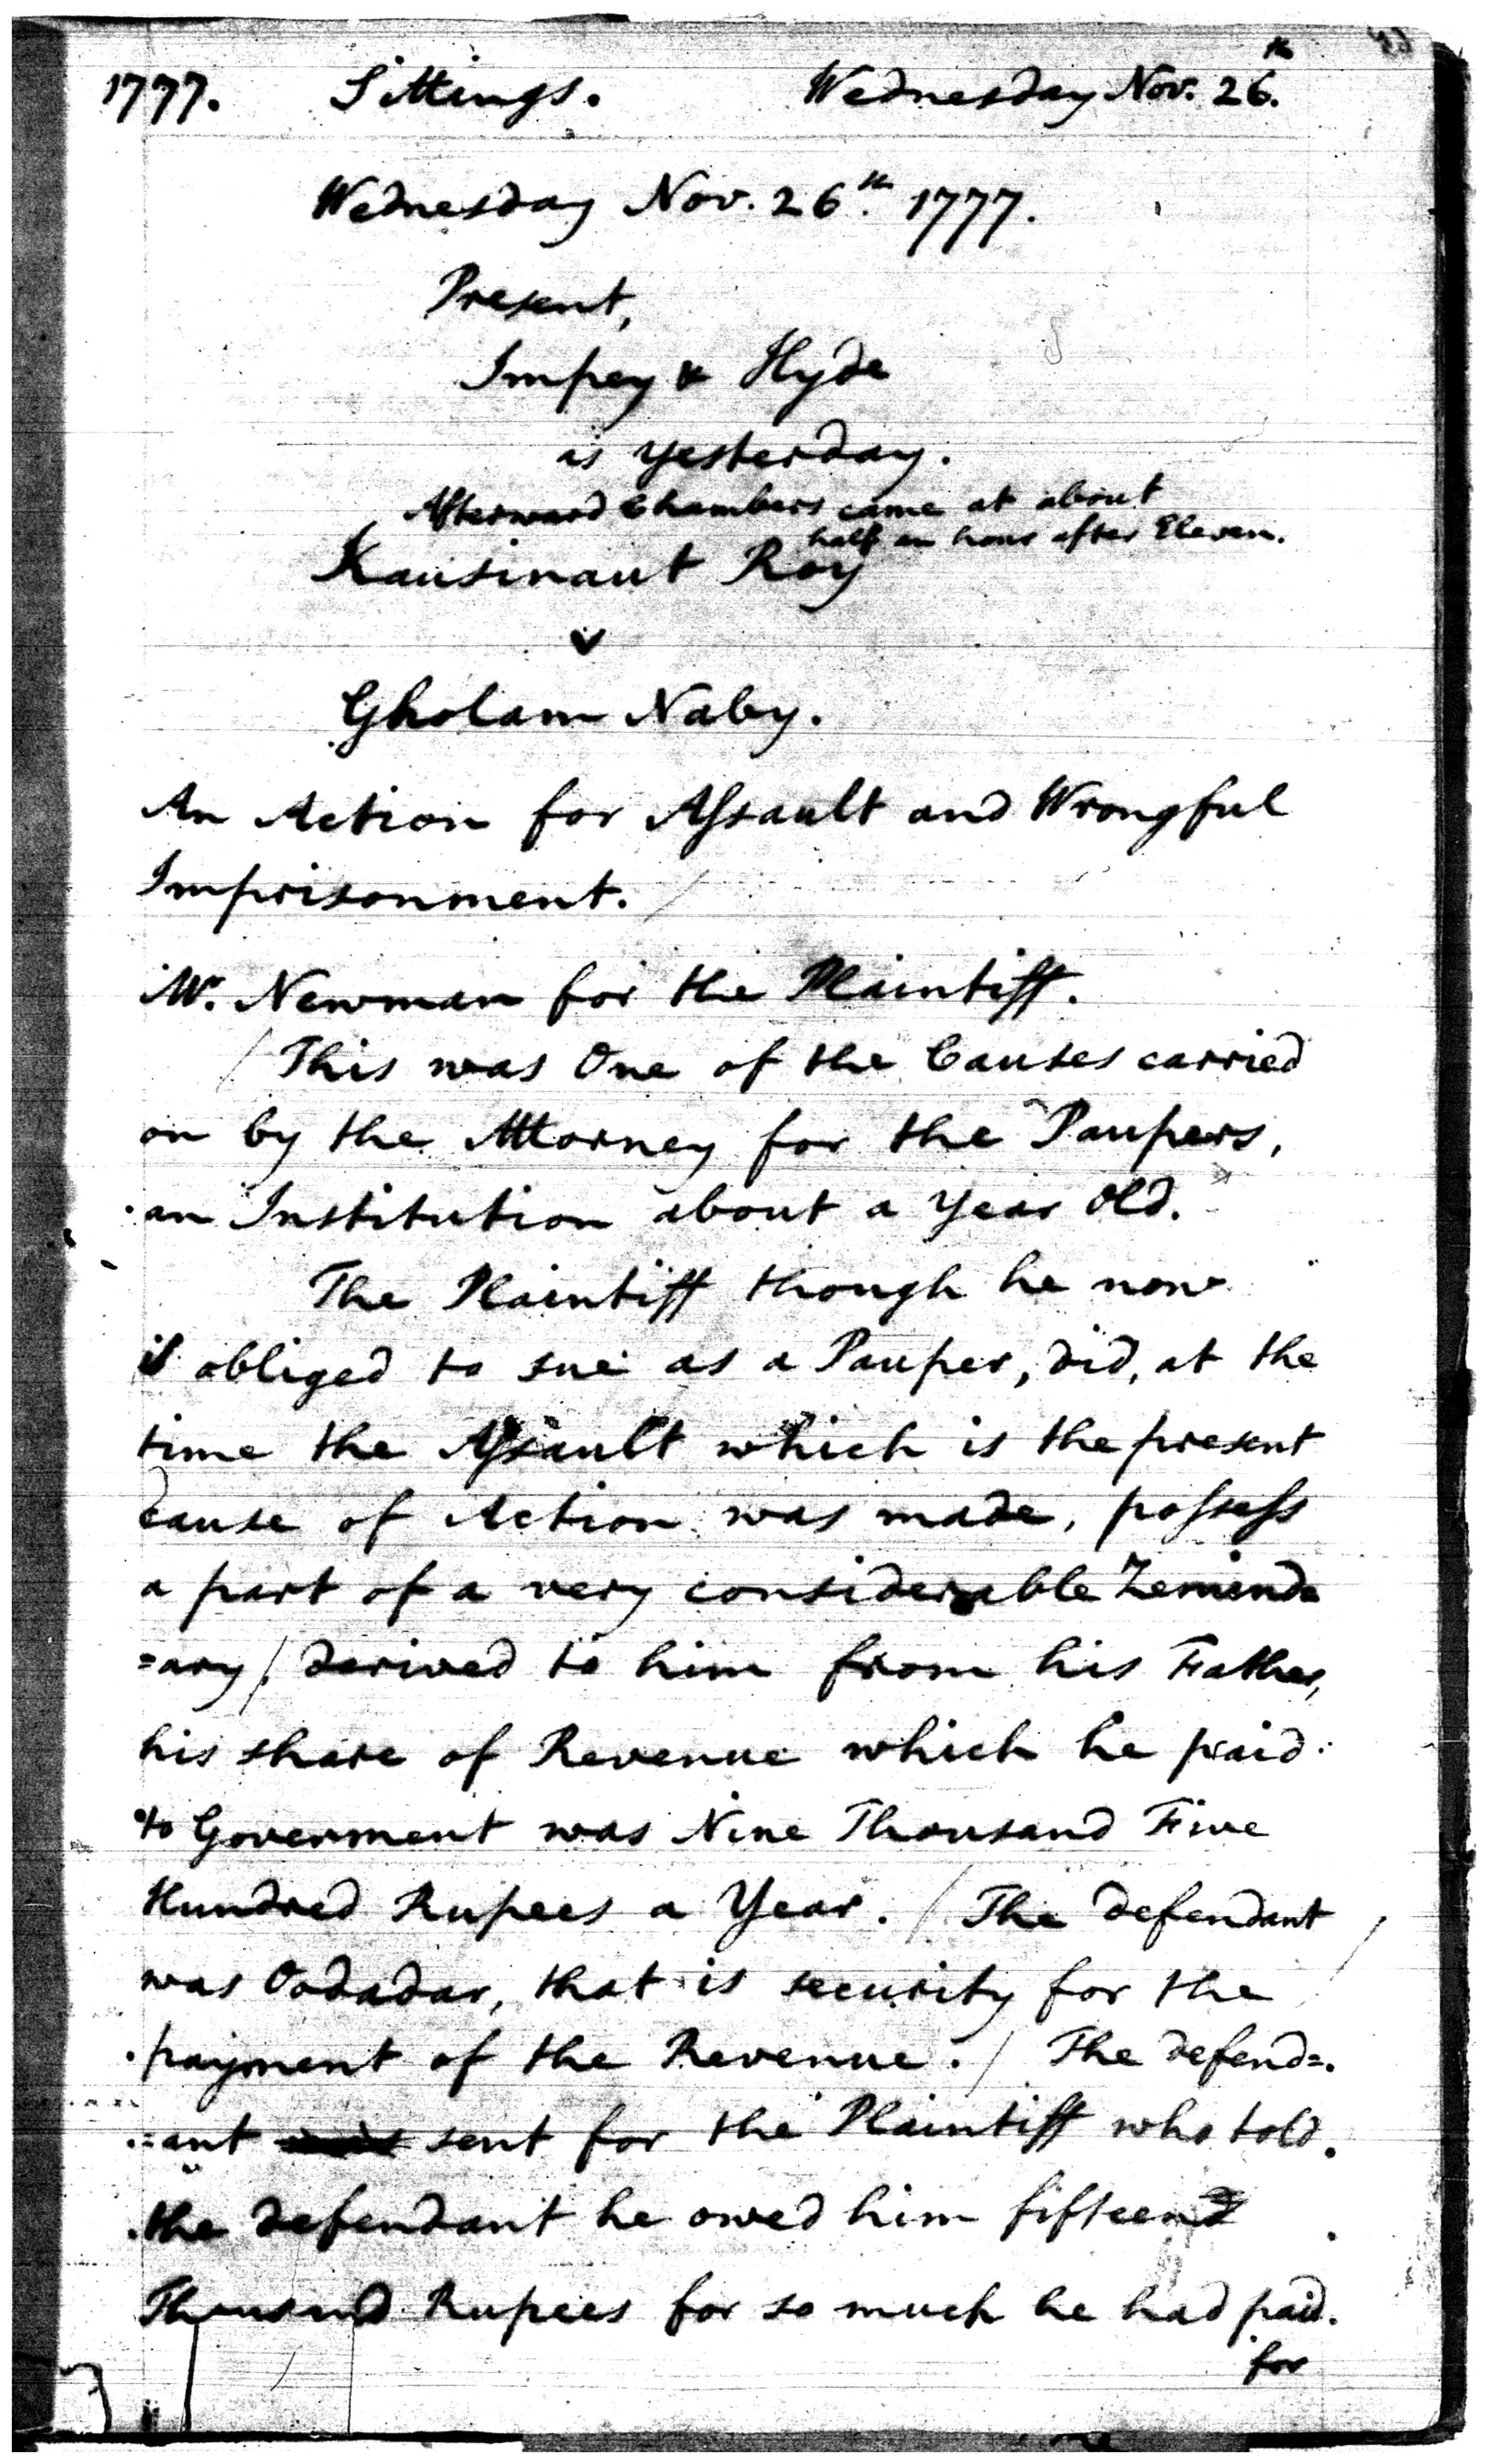 1777. Sittings. Wednesday Nov. 26.th
Wednesday Nov. 26.th 1777.
Present,
Impey & Hyde
as yesterday.
Afterward Chambers came at about
half an hour after Eleven.
Kausinaut Roy
v
Gholam Naby.
An Action for Assault and Wrongful
Imprisonment.
Mr. Newman for the Plaintiff.
/ This was One of the Causes carried
on by the Attorney for the Paupers,
an Institution about a year old.
The Plaintiff though he now
is obliged to sue as a Pauper, did, at the
time the Assault which is the present
cause of Action was made, possess
a part of a very considerable Zeminda
=ary / derived to him from his Father,
his share of Revenue which he paid
to Goverment was Nine Thousand Five
Hundred Rupees a Year. / The defendant
was Oodadar, that is security for the
payment of the Revenue. / The defend=
=ant sent for the Plaintiff who told
the defendant he owed him fifteen
Thousand Rupees for so much he had paid.
for